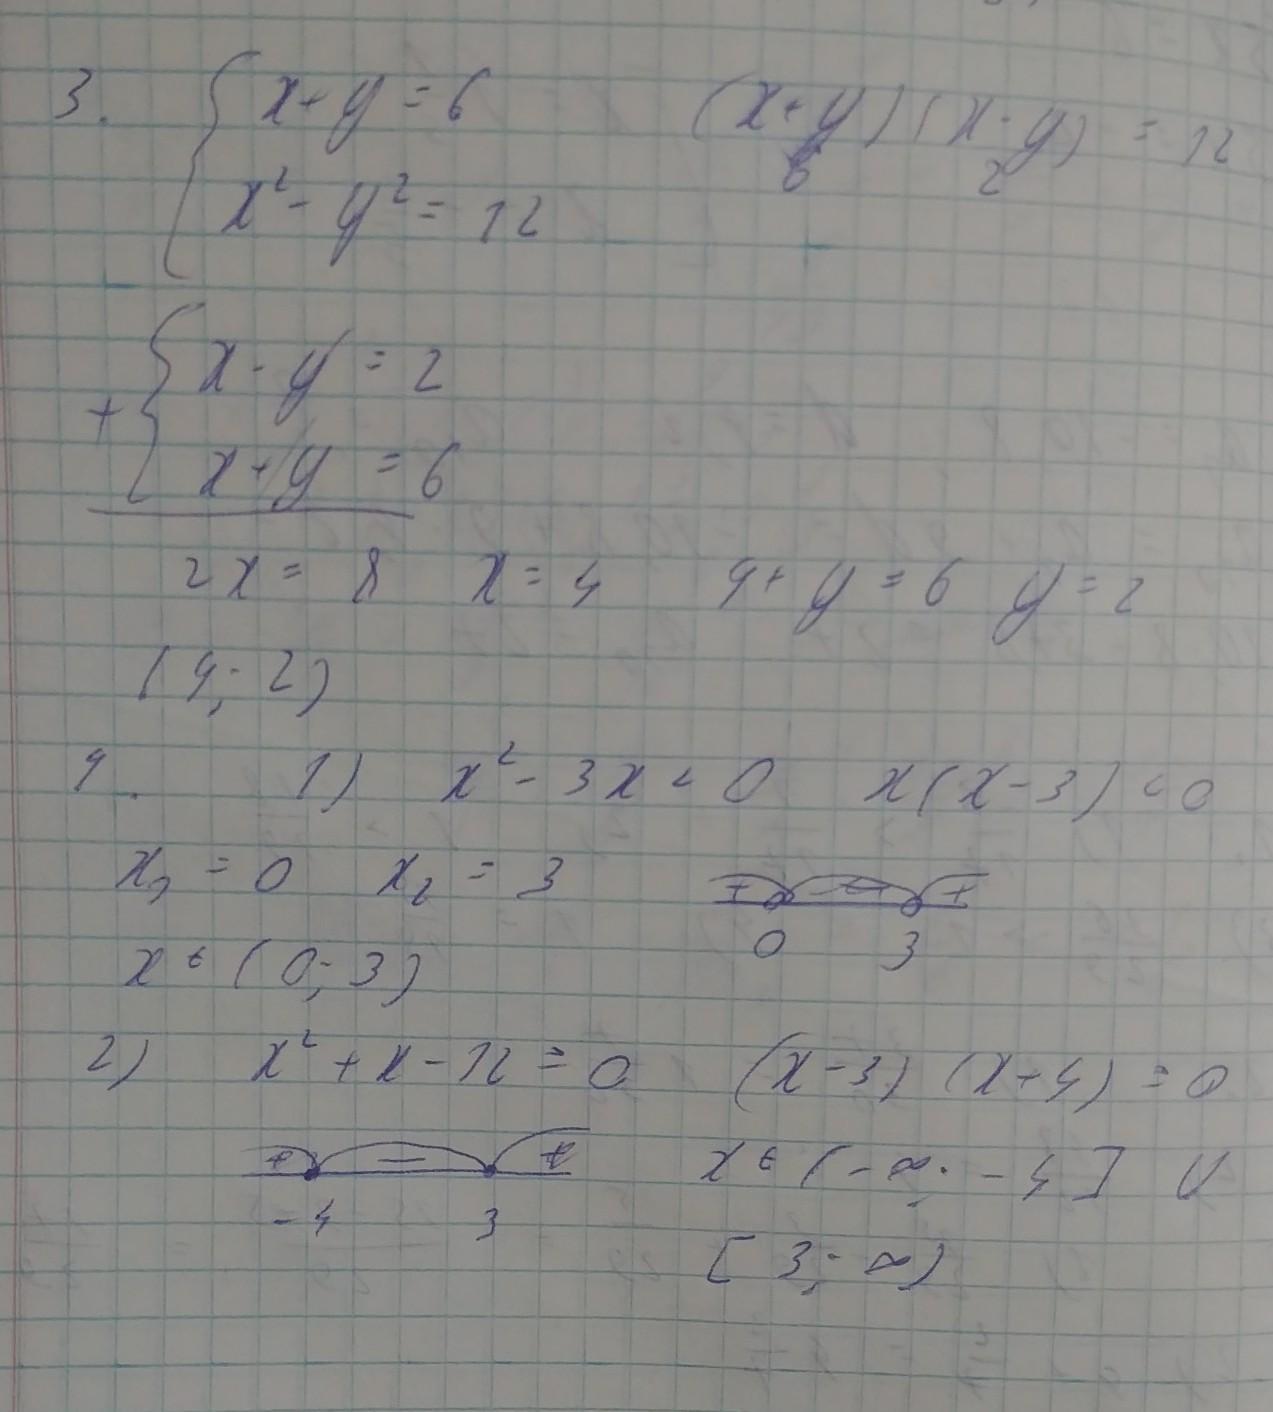 3. { x+y = 6 (x+y)(x-y) = 12
x² - y² = 12 6 2
+ { x - y = 2
x + y = 6
2x = 8 x = 4 4 + y = 6 y = 2
(4; 2)
4. 1) x² - 3x < 0 x(x-3) < 0
x₁ = 0 x₂ = 3 + - +
0 3
x ∈ (0; 3)
2) x² + x - 12 = 0 (x-3) (x+4) = 0
+ - + x ∈ (-∞; -4] ∪
-4 3
[3; ∞)